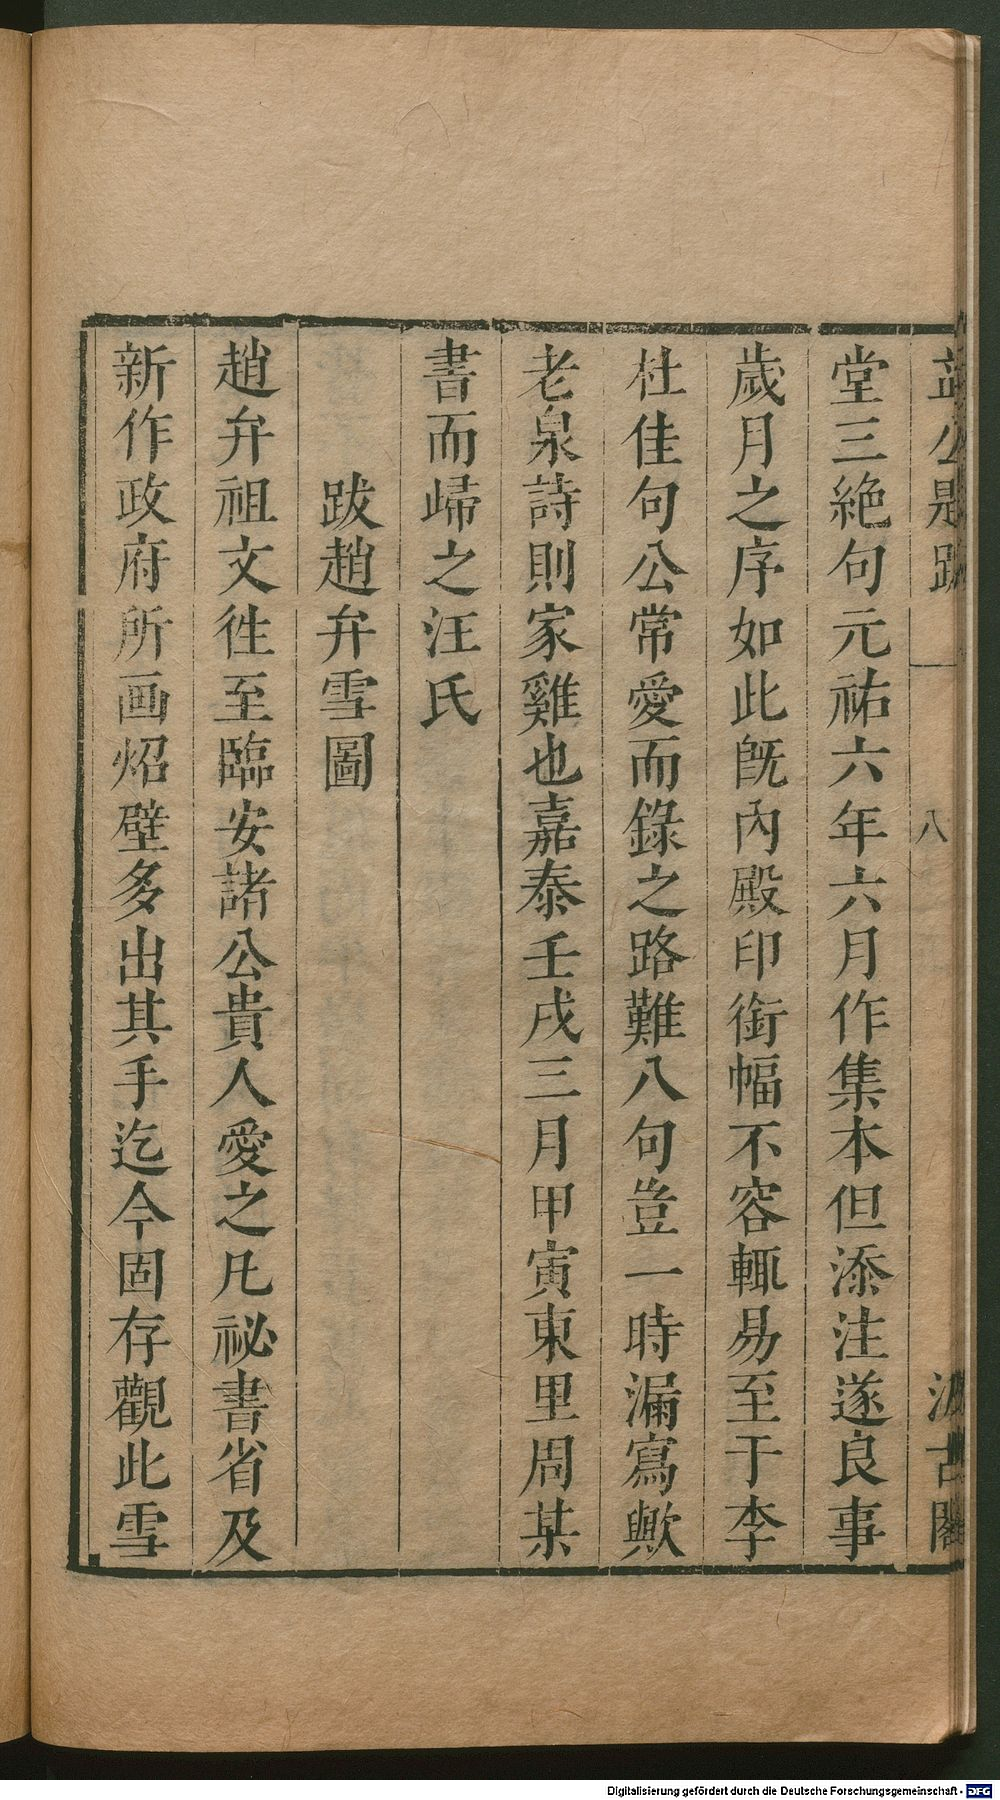 益公題跋 八 汲古閣
堂三絶句元祐六年六月作集本但添注遂良事
歲月之序如此旣內殿印銜幅不容輒易至于李
杜佳句公常愛而錄之路難八句豈一時漏寫歟
老泉詩則家雞也嘉泰壬戌三月甲寅東里周某
書而歸之汪氏
跋趙弁雪圖
趙弁祖文徃至臨安諸公貴人愛之凡祕書省及
新作政府所画炤壁多出其手迄今固存觀此雪
Digitalisierung gefördert durch die Deutsche Forschungsgemeinschaft - DFG